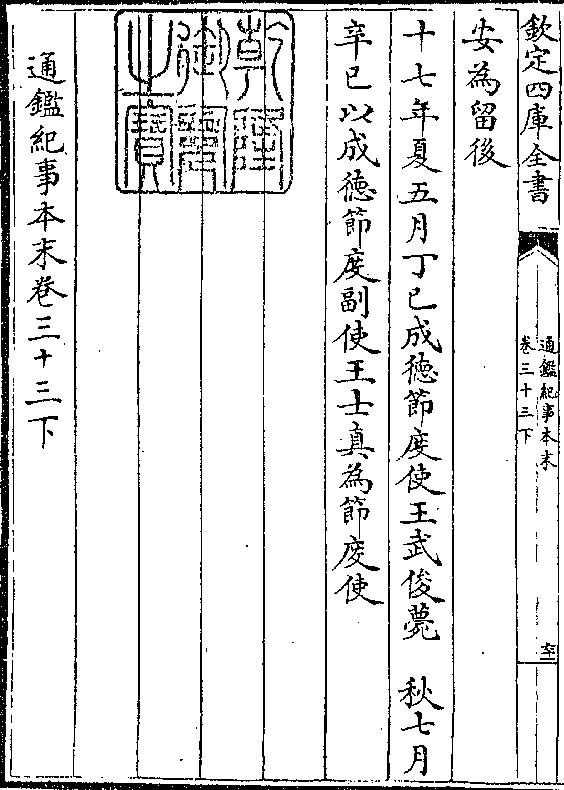 欽定四庫全書
通鑑紀事本末
卷三十三下
六十一
安為留後
十七年夏五月丁巳成徳節度使王武俊薨 秋七月
辛巳以成徳節度副使王士真為節度使
乾隆御覽之寶
通鑑紀事本末卷三十三下